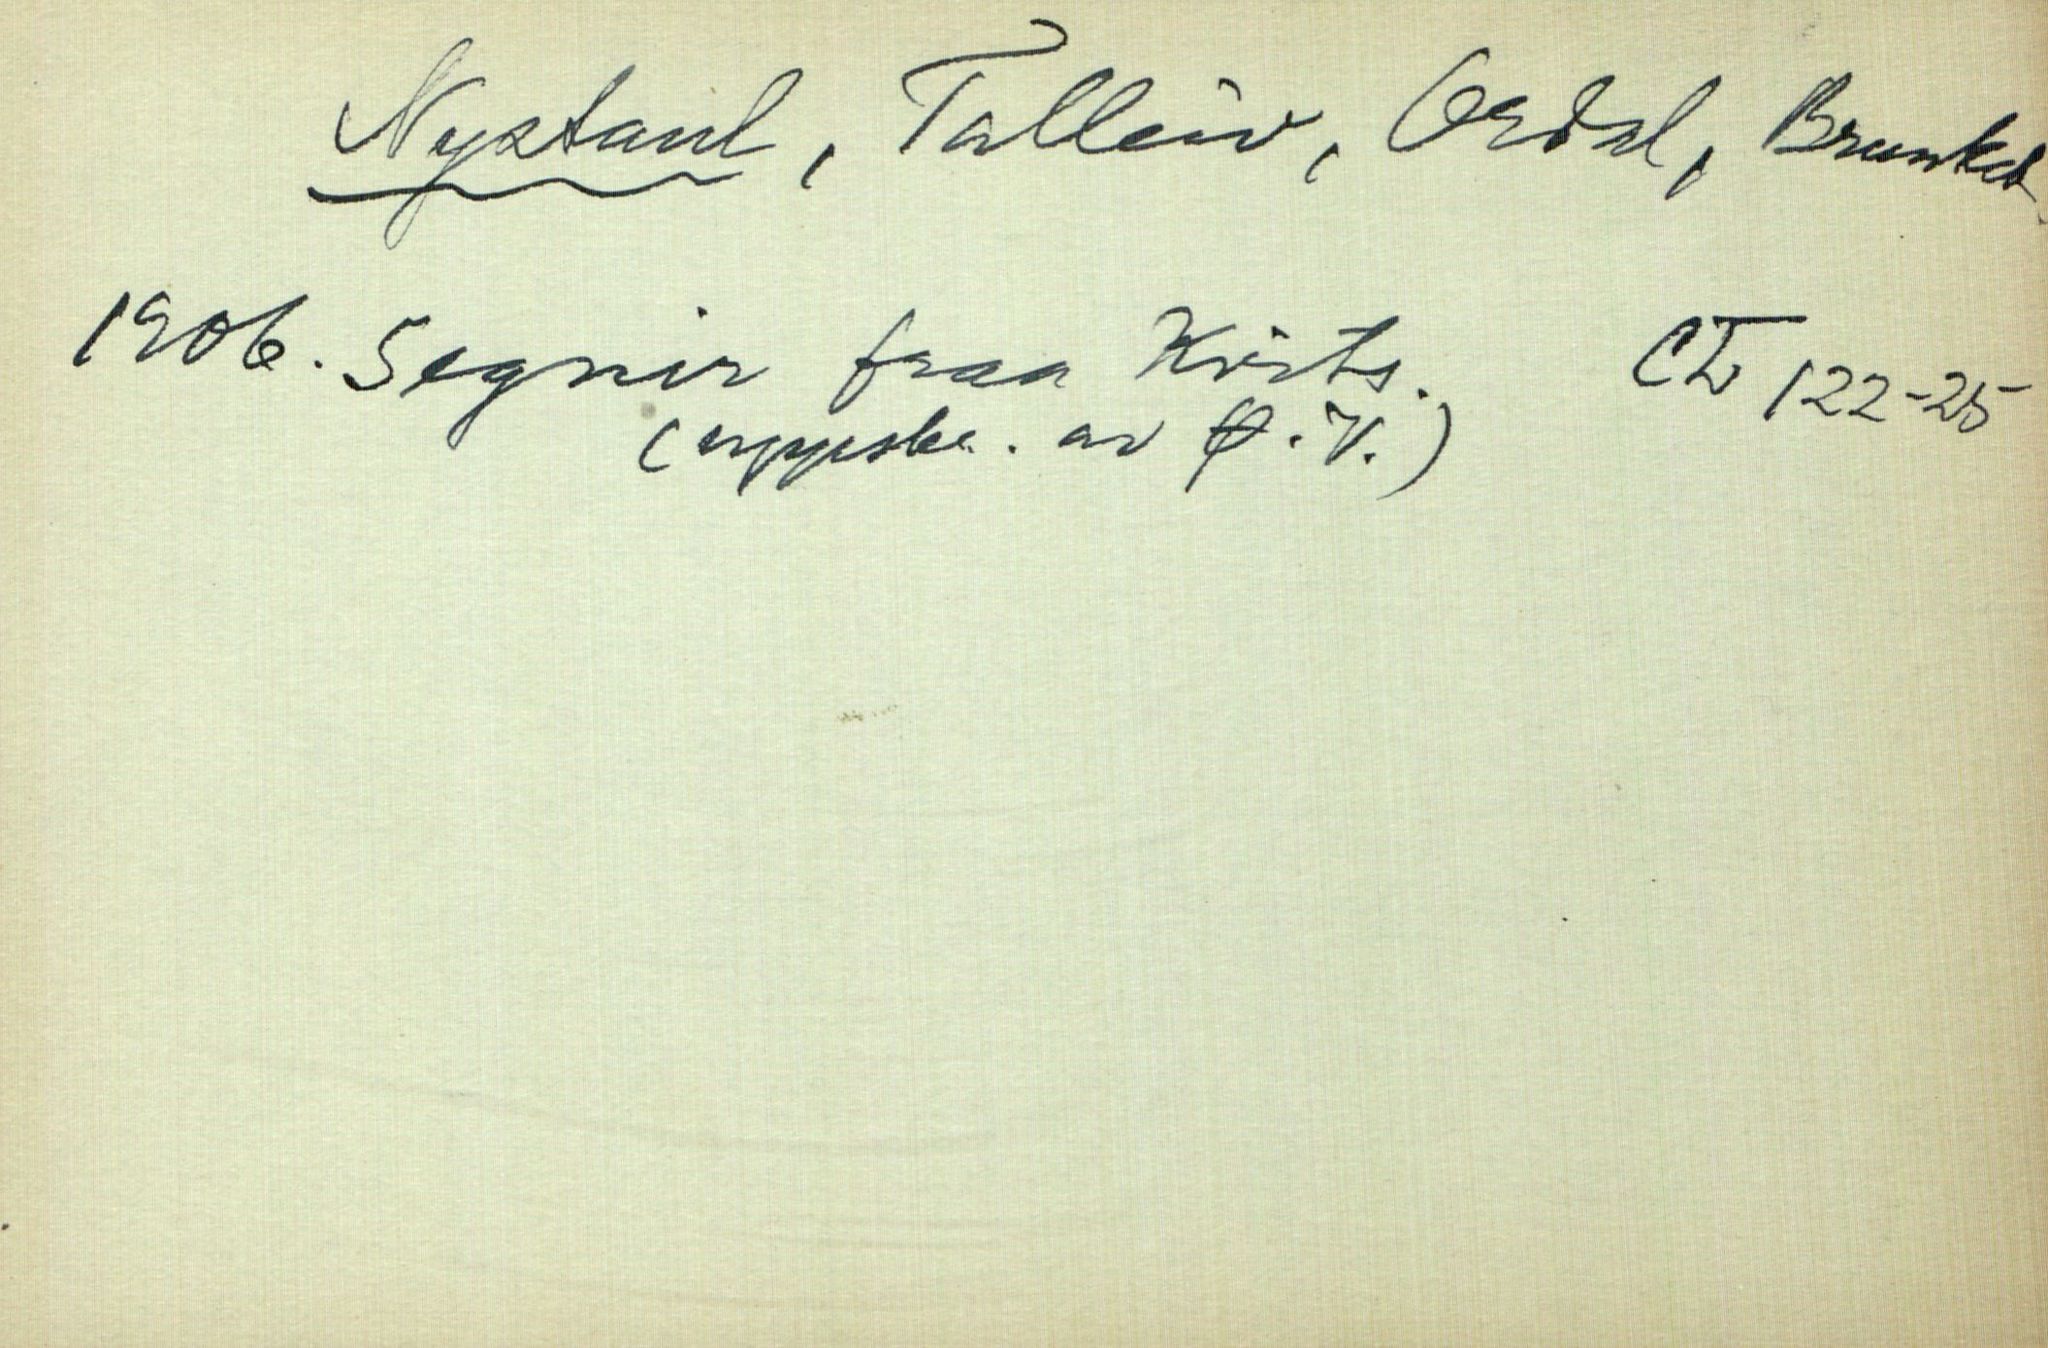 Nystaul, Talleiv, Ordal, Brunkeb.
1906. Segnir fraa Kvits. CI 122-25
(uppskr. av Ø.V.)